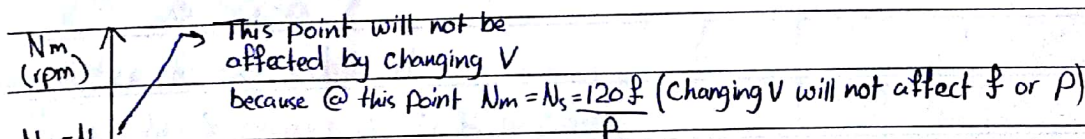 Nm
(rpm)
This point will not be
affected by changing V
because @ this point Nm = Ns = 120f (Changing V will not affect f or P)
P